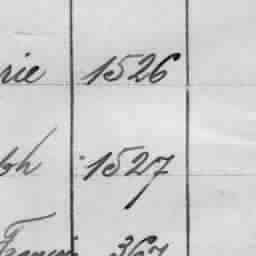 rie 1526
ph 1527
François 367